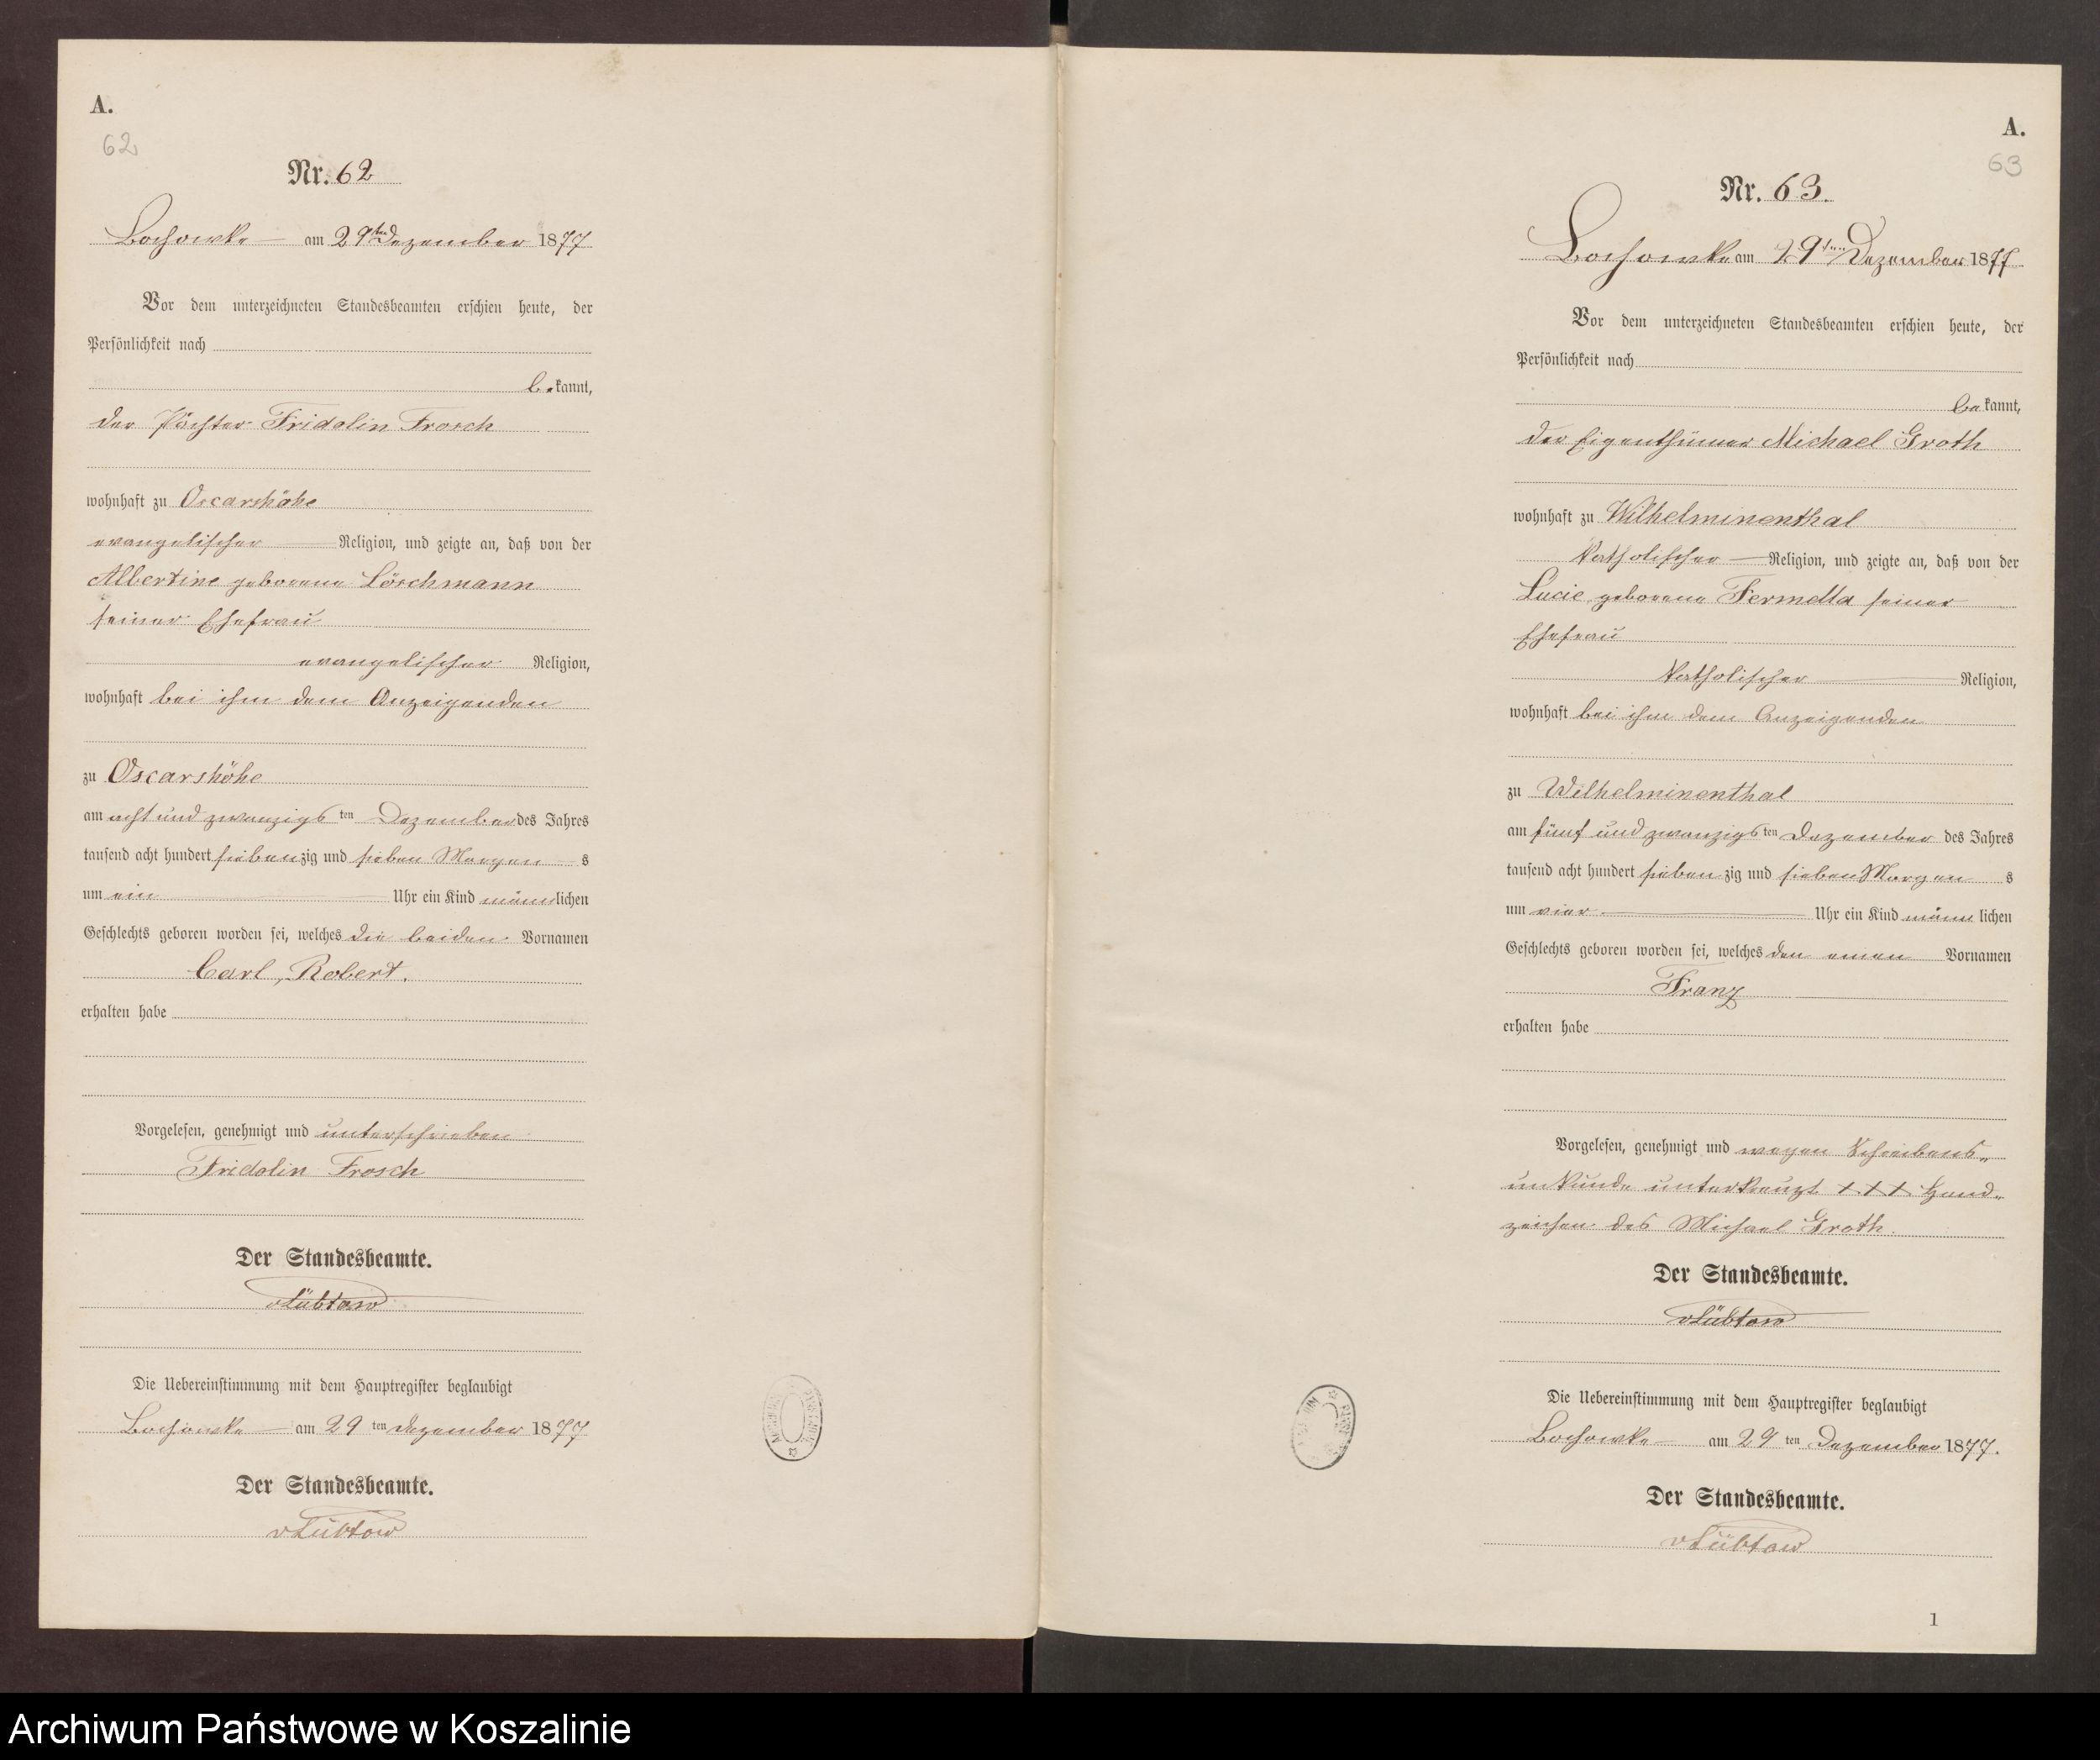 A.
62
Nr. 62
Lochowke am 29ten Dezember 1877
Vor dem unterzeichneten Standesbeamten erschien heute, der
Persönlichkeit nach
bekannt,
der Pächter Fridolin Frosch
wohnhaft zu Oscarshöhe
evangelischer Religion, und zeigte an, daß von der
Albertine geborene Löschmann
seiner Ehefrau
evangelischer Religion,
wohnhaft bei ihm dem Anzeigenden
zu Oscarshöhe
am acht und zwanzigsten Dezember des Jahres
tausend acht hundert siebenzig und sieben Morgens
um ein Uhr ein Kind männlichen
Geschlechts geboren worden sei, welches die beiden Vornamen
Carl, Robert.
erhalten habe
Vorgelesen, genehmigt und unterschrieben
Fridolin Frosch
Der Standesbeamte.
vLübtow
Die Uebereinstimmung mit dem Hauptregister beglaubigt
Lochowke am 29 ten Dezember 1877
Der Standesbeamte.
vLübtow
A.
63
Nr. 63.
Lochowke am 29ten Dezember 1877
Vor dem unterzeichneten Standesbeamten erschien heute, der
Persönlichkeit nach
bekannt,
der Eigenthümer Michael Groth
wohnhaft zu Wilhelminenthal
katholischer Religion, und zeigte an, daß von der
Lucie geborene Fermella seiner
Ehefrau
katholischer Religion,
wohnhaft bei ihm dem Anzeigenden
zu Wilhelminenthal
am fünf und zwanzigsten Dezember des Jahres
tausend acht hundert siebenzig und sieben Morgens
um vier Uhr ein Kind männlichen
Geschlechts geboren worden sei, welches den einen Vornamen
Franz
erhalten habe
Vorgelesen, genehmigt und wegen Schreibens-
unkunde unterkreuzt +++ Hand-
zeichen des Michael Groth.
Der Standesbeamte.
vLübtow
Die Uebereinstimmung mit dem Hauptregister beglaubigt
Lochowke am 29 ten Dezember 1877.
Der Standesbeamte.
vLübtow
1
Archiwum Państwowe w Koszalinie